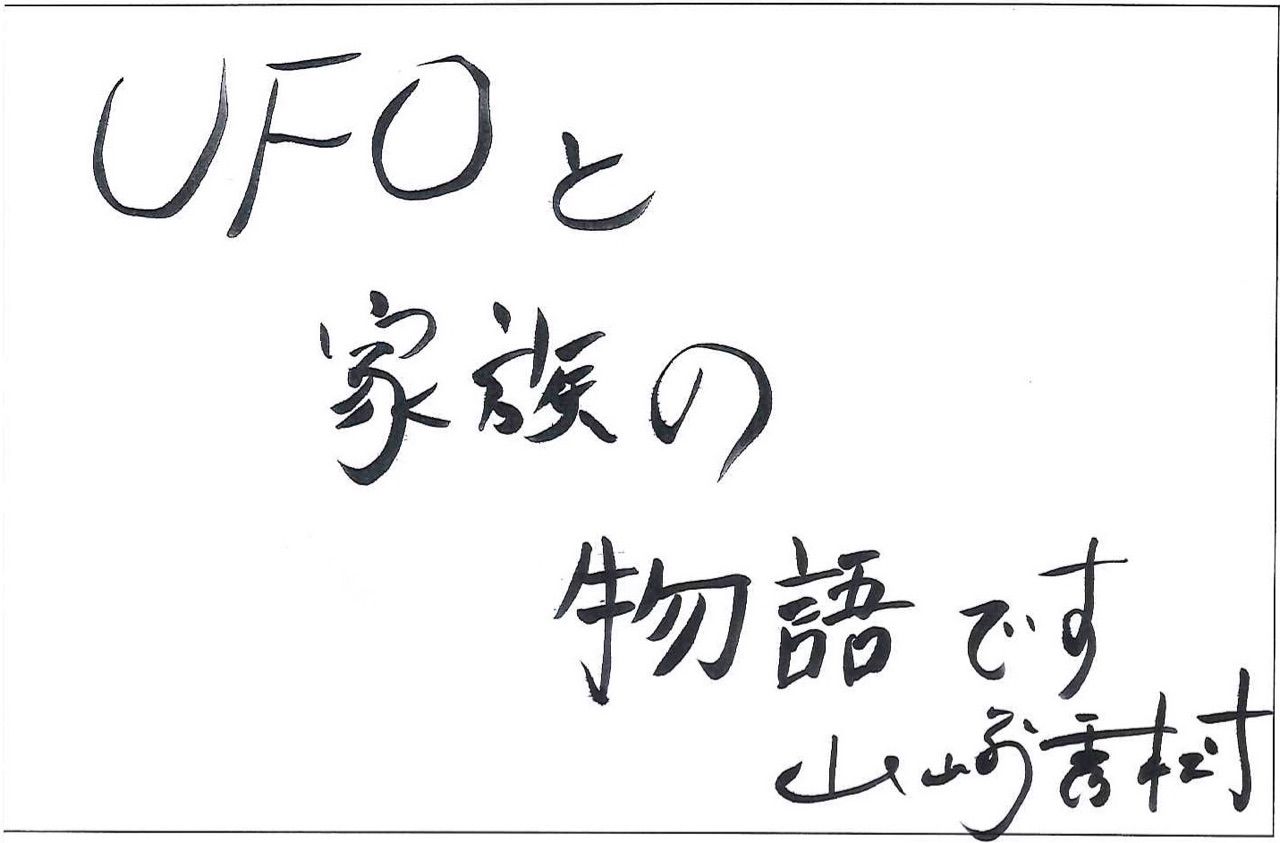 UFOと
家族の
物語です
山崎秀樹